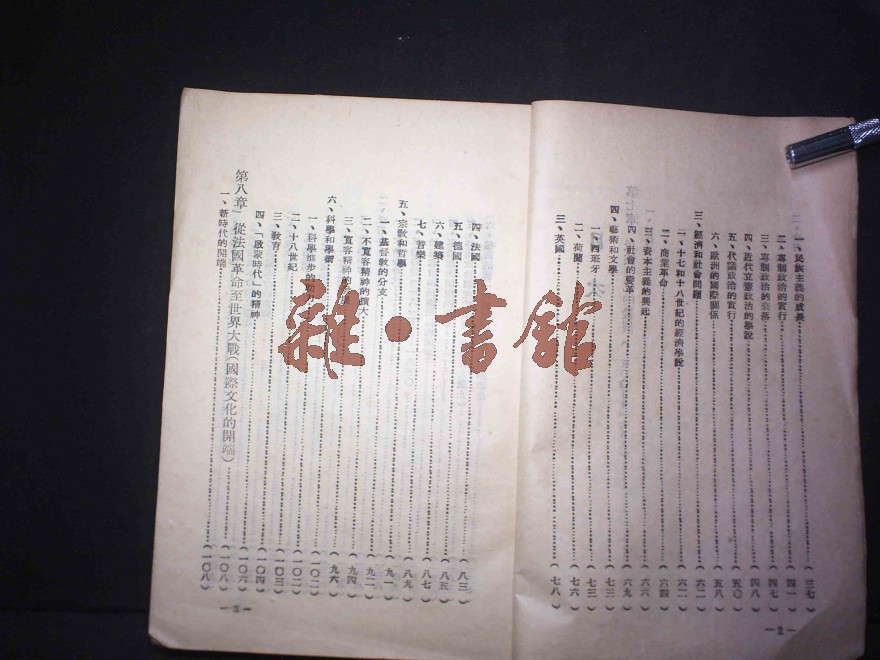 一、民族主義的成長……(三七)
二、專制政治的實行……(四一)
三、專制政治的衰落……(四七)
四、近代立憲政治的學說……(四八)
五、代議政治的實行……(五〇)
六、歐洲的國際關係……(五八)
三、經濟和社會問題……(六二)
一、十七和十八世紀的經濟學說……(六二)
二、商業革命……(六四)
三、資本主義的興起……(六六)
四、社會的變革……(六九)
四、藝術和文學……(七三)
一、西班牙……(七三)
二、荷蘭……(七六)
三、英國……(七八)
—2—
四、法國……(八三)
五、德國……(八五)
六、建築……(八七)
七、音樂……(八九)
五、宗教和哲學……(九一)
一、基督教的分支
二、不寬容精神的擴大……(九二)
三、寬容精神的……(九四)
六、科學和學術……(九六)
一、科學進步的
二、十八世紀……(一〇二)
三、教育……(一〇三)
四、「啟蒙時代」的精神……(一〇四)
第八章 從法國革命至世界大戰(國際文化的開端)
一、新時代的開端……(一〇八)
—3—
雜•書館